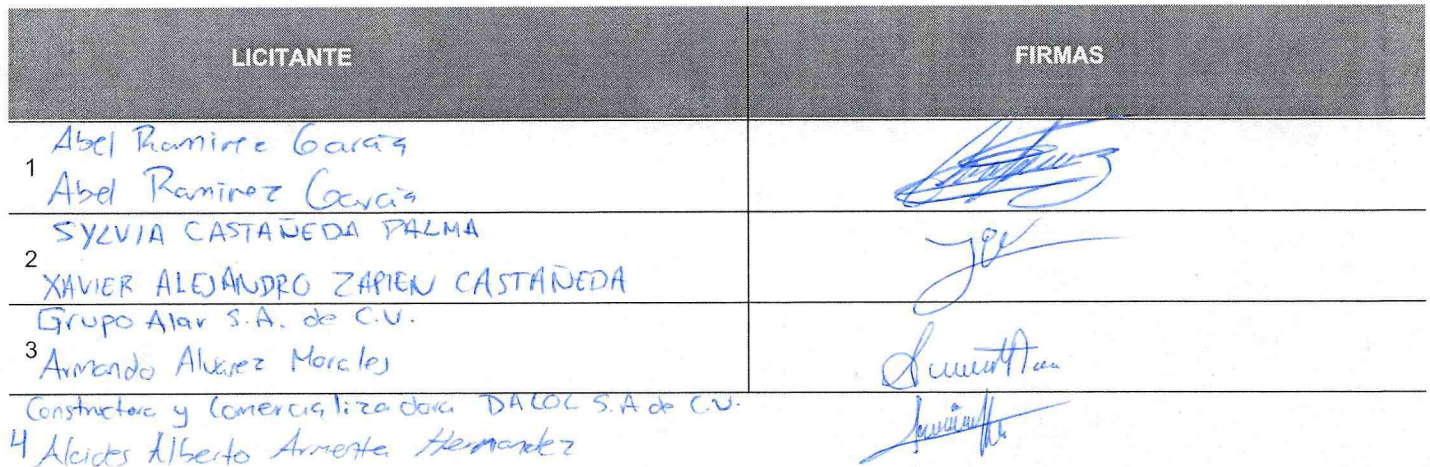 LICITANTE FIRMAS
Abel Ramirez Garcia
1
Abel Ramirez Garcia
SYLVIA CASTAÑEDA PALMA
2
XAVIER ALEJANDRO ZAPIEN CASTAÑEDA
Grupo Alar S.A. de C.V.
3 Armando Alvarez Morales
Constructora y Comercializadora DALOL S.A de C.V.
4 Alcides Alberto Armenta Hernandez